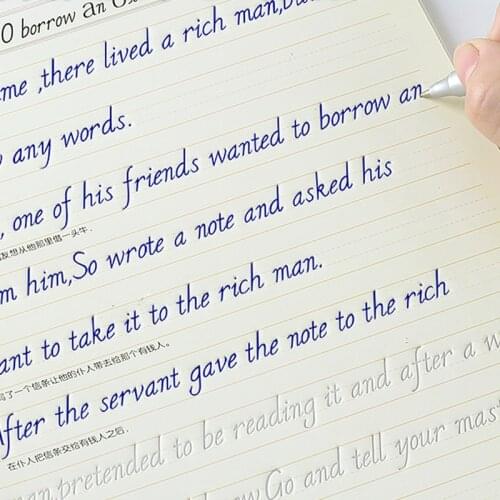 O borrow an
me ,there lived a rich man,
any words.
, one of his friends wanted to borrow an
友想从他那里借一头牛.
m him,So wrote a note and asked his
ant to take it to the rich man.
了一个信条让他的仆人带去给那个有钱人。
After the servant gave the note to the rich
在仆人把信条交给有钱人之后.
man,pretended to be reading it and after a w
Go and tell your mast